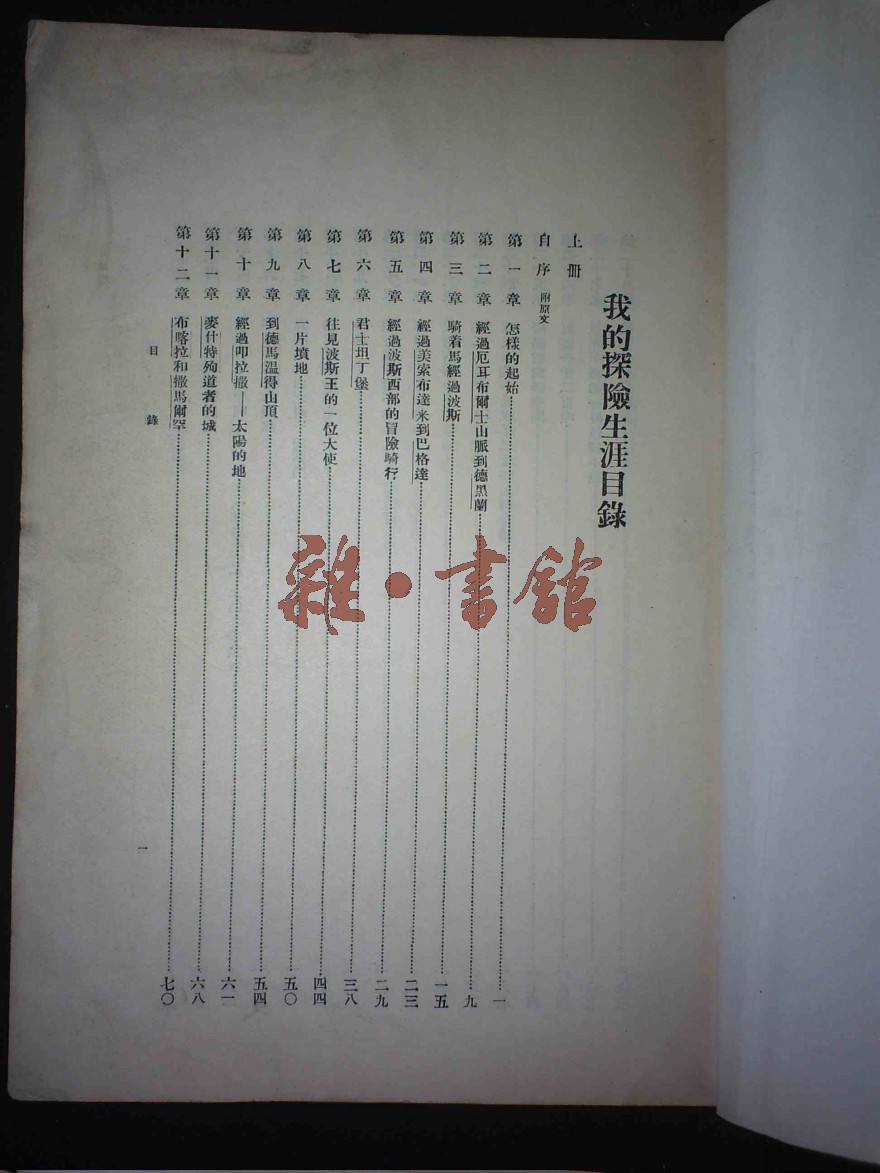 我的探險生涯目錄
上册
自序 附原文
第一章 怎樣的起始 一
第二章 經過厄耳布爾士山脈到德黑蘭 九
第三章 騎着馬經過波斯 一五
第四章 經過美索布達米到巴格達 二三
第五章 經過波斯西部的冒險騎行 二九
第六章 君士坦丁堡 三八
第七章 往見波斯王的一位大使 四四
第八章 一片墳地 五〇
第九章 到德馬溫得山頂 五四
第十章 經過叩拉撒——太陽的地 六一
第十一章 麥什特殉道者的城 六八
第十二章 布喀拉和撒馬爾罕 七〇
目錄
一
雜·書館